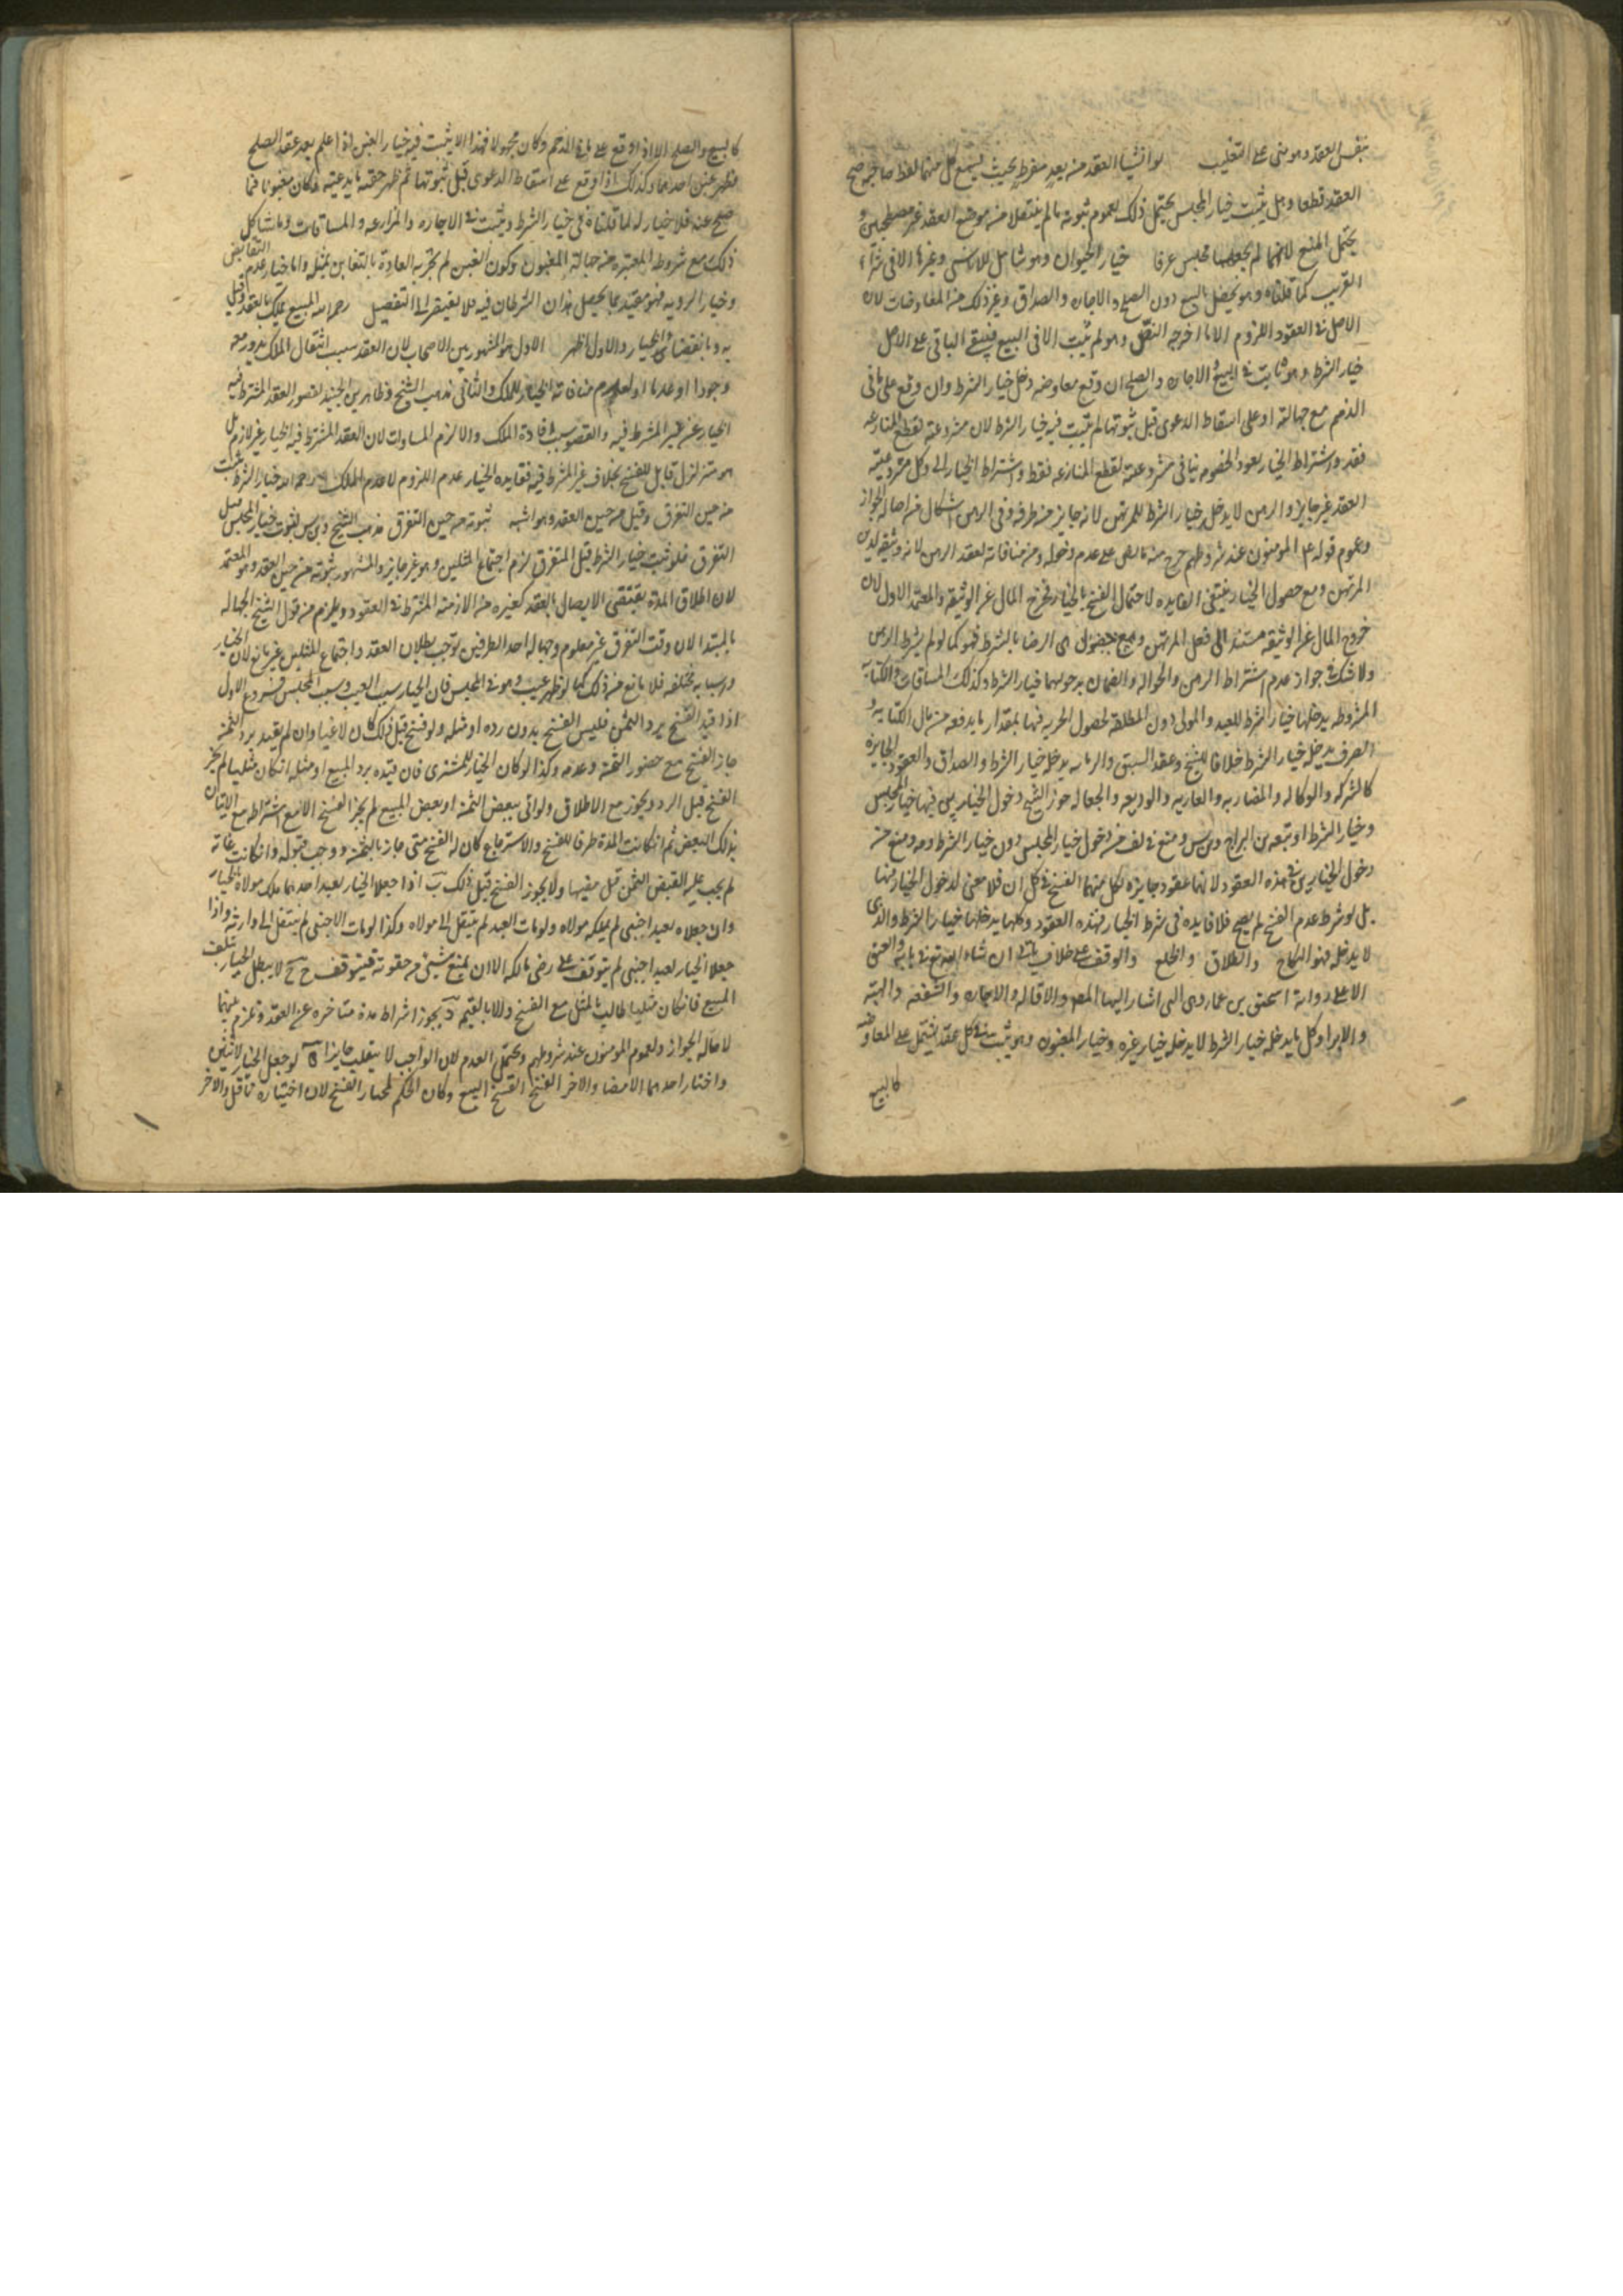 بنفس العقد وهو مبنى على التغليب لو انشيا العقد من بعد مفرط بحيث يسمع كل منهما لفظ صاحبه صح
العقد قطعا وهل يثبت خيار المجلس يحتمل ذلك لعموم ثبوته ما لم ينتقلا من موضع العقد غير مصطحبين و
يحتمل المنع لانهما لم يجمعهما مجلس عرفا خيار الحيوان وهو شامل للانسى وغيرها الا فى شراء
القريب كما قلناه وهو يحصل بالبيع دون الصلح والاجاره والصداق وغير ذلك من المعاوضات لان
الاصل فى العقود اللزوم الا ما اخرجه النص وهو لم يثبت الا فى البيع فيبقى الباقى على الاصل
خيار الشرط وهو ثابت فى البيع والاجاره والصلح ان وقع معاوضه دخل خيار الشرط وان وقع على ما فى
الذمم مع جهالته او على اسقاط الدعوى قبل ثبوتها لم يثبت فيه خيار الشرط لان مشروعيته لقطع المنازعه
فقد واشتراط الخيار بعود الخصومه ينافى مشروعيته لقطع المنازعه فقط واشتراط الخيار الى وكل مشروعيته
العقد غير جايز والرهن لا يدخله خيار الشرط للمرتهن لانه جايز من طرفه وفى الراهن اشكال من اصاله الجواز
وعموم قوله عم المومنون عند شروطهم خرج منه ما نص على عدم دخوله ومن منافاته لعقد الرهن لانه وثيقه لدين
المرتهن ومع حصول الخيار ينتفى الفايده لاحتمال الفسخ بالخيار فيخرج المال عن الوثيقه والمعتمد الاول لان
خروج المال عن الوثيقه مستند الى فعل المرتهن وهو الرضا بالشرط فهو كما لو لم يشرط الرهن
ولا شك فى جواز عدم اشتراط الرهن والحواله والضمان يدخلهما خيار الشرط وكذلك المساقات والكتابه
المشروطه يدخلها خيار الشرط للعبد والمولى دون المطلقه لحصول الحريه فيها بمقدار ما يدفعه من مال الكتابه و
الصرف يدخله خيار الشرط خلافا للشيخ وعقد السبق والرمايه يدخله خيار الشرط والصداق والعقود الجايزه
كالشركه والوكاله والمضاربه والعاريه والوديعه والجعاله جوز الشيخ دخول الخيارين فيها خيار المجلس
وخيار الشرط وتبعه بن البراج وبن س ومنع فى لف من دخول خيار المجلس دون خيار الشرط ومنع من
دخول الخيارين فى هذه العقود لانها عقود جايزه لكل منهما الفسخ فى كل ان فلا معنى لدخول الخيار فيها
بل لو شرط عدم الفسخ لم يصح فلا فايده فى شرط الخيار فهذه العقود وكلها يدخلها خيار الشرط والذى
لا يدخله فهو النكاح والطلاق والخلع والوقف على خلاف ياتى ان شاء الله تع فى بابه والعتق
الا على رواية اسحق بن عمار وهى التى اشار اليها المصر والاقاله والاجاره والشفعه والهبه
والابرا وكل ما يدخله خيار الشرط لا يدخله خيار غيره وخيار المغبون وهو يثبت فى كل عقد يشتمل على المعاوضه
كالبيع
كالبيع والصلح الا اذا وقع على ما فى الذمم وكان مجهولا فهذا لا يثبت فيه خيار الغبن اذا علم بعد عقد الصلح
فظهر غبن احدهما وكذلك اذا وقع على اسقاط الدعوى قبل ثبوتها ثم ظهر حقيه ما يدعيه فكان مغبونا فيما
صلح عنه فلا خيار له لما قلناه فى خيار الشرط ويثبت فى الاجاره والمزارعه والمساقات وما شاكل
ذلك مع شروطه المعتبره من جهالة المغبون وكون الغبن لم يجر به العادة بالتغابن بمثله واما خيار عدم التقابض
وخيار الرويه فهو مقيد بما يحصل هذان الشرطان فيه فلا يفتقر الى التفصيل رحمه الله المبيع يملك بالعقد وقيل
به وبانقضاء الخيار والاول اظهر الاول هو المشهور بين الاصحاب لان العقد سبب انتقال الملك يدور معه
وجودا وعدما ولعدم منافاة الخيار للملك والثانى مذهب الشيخ وظاهر بن الجنيد لقصور العقد المشترط فيه
الخيار عن غير المشرط فيه والقصور سبب افادة الملك والا لزم المساوات لان العقد المشترط فيه الخيار غير لازم بل
هو متزلزل قابل للفسخ بخلاف غير المشرط فيه ففايده الخيار عدم اللزوم لا عدم الملك رحمه الله خيار الشرط يثبت
من حين التفرق وقيل من حين العقد وهو اشبه ثبوته من حين التفرق مذهب الشيخ وبن س لثبوت خيار المجلس قبل
التفرق فلو ثبت خيار الشرط قبل التفرق لزم اجتماع المثلين وهو غير جايز والمشهور ثبوته من حين العقد وهو المعتمد
لان اطلاق المدة يقتضى الاتصال بالعقد كغيره من الازمنه المشترطه فى العقود ويلزم من قول الشيخ الجهاله
بالمبتدا لان وقت التفرق غير معلوم وجهاله احد الطرفين توجب بطلان العقد واجتماع المثلين غير مانع لان الخيار
واسبابه مختلفه فلا مانع من ذلك كما لو ظهر عيب وهو فى المجلس فان الخيار بسبب العيب وسبب المجلس فروع الاول
اذا قيد الفسخ برد الثمن فليس الفسخ بدون رده او مثله ولو فسخ قبل ذلك كان لاغيا وان لم يقيد برد الثمن
جاز الفسخ مع حضور الثمن وعدمه وكذا لو كان الخيار للمشترى فان قيده برد المبيع او مثله ان كان مثليا لم يجز
الفسخ قبل الرد ويجوز مع الاطلاق ولو اتى ببعض الثمن او بعض المبيع لم يجز الفسخ الا مع اشتراطه مع الاتيان
بذلك البعض ثم ان كانت المدة ظرفا للفسخ والاسترجاع كان له الفسخ متى جاز بالثمن ووجب قبوله وان كانت غاته
لم يجب عليه القبض الثمن قبل مضيها ولا يجوز الفسخ قبل ذلك ب اذا جعلا الخيار لعبد احدهما ملك مولاه الخيار
وان جعلاه لعبد اجنبى لم يملكه مولاه ولو مات العبد لم ينتقل الى مولاه وكذا لو مات الاجنبى لم ينتقل الى وارثه واذا
جعلا الخيار لعبد اجنبى لم يتوقف على رضى مالكه الا ان يمنع شيئ من حقوقه فيتوقف ح ج لا يبطل الخيار بتلف
المبيع فان كان مثليا طالب بالمثل مع الفسخ والا بالقيمه د يجوز اشراط مدة متاخره عن العقد وتلزم بينهما
لاصاله الجواز ولعموم المومنون عند شروطهم ويحتمل العدم لان الواجب لا ينقلب جايزا ه لو جعل الخيار لاثنين
واختار احدهما الامضا والاخر الفسخ انفسخ البيع وكان الحكم لمختار الفسخ لان اختياره ناقل والاخر